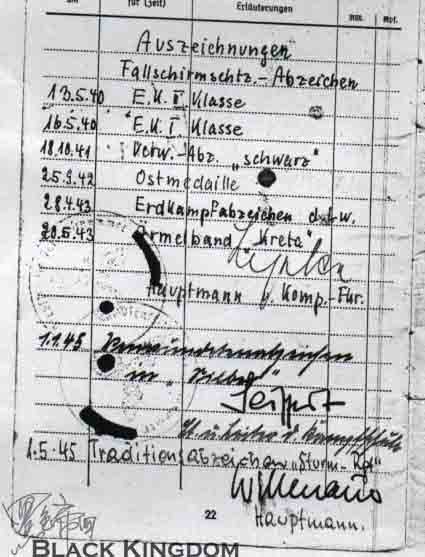 für (Zeit) Erläuterungen
Auszeichnungen
Fallschirmschtz.-Abzeichen
13.5.40 E.K. II. Klasse
16.5.40 E.K. I. Klasse
18.10.41 Verw.-Abz. „schwarz"
25.9.42 Ostmedaille
28.4.43 Erdkampfabzeichen d.Lw.
20.5.43 Ärmelband „Kreta"
Hauptmann u. Komp.-Fhr.
1.1.45 Verwundetenabzeichen
in „Silber"
1.5.45 Traditionsabzeichen „Sturm-Rgt"
Hauptmann.
22
BLACK KINGDOM